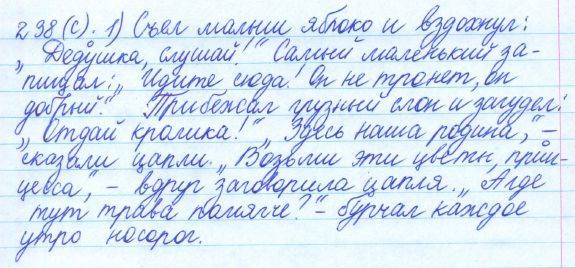 298(с). 1) Съел малыш яблоко и вздохнул:
„Дедушка, слушай!“ Самый маленький за-
пищал: „Идите сюда! Он не тронет, он
добрый.“ Прибежал грузный слон и загудел:
„Отдай кролика!“ „Здесь наша родина,“ –
сказали цапли. „Возьми эти цветы, прин-
цесса,“ – вдруг заговорила цапля. „А где
тут трава помягче?“ – бурчал каждое
утро носорог.